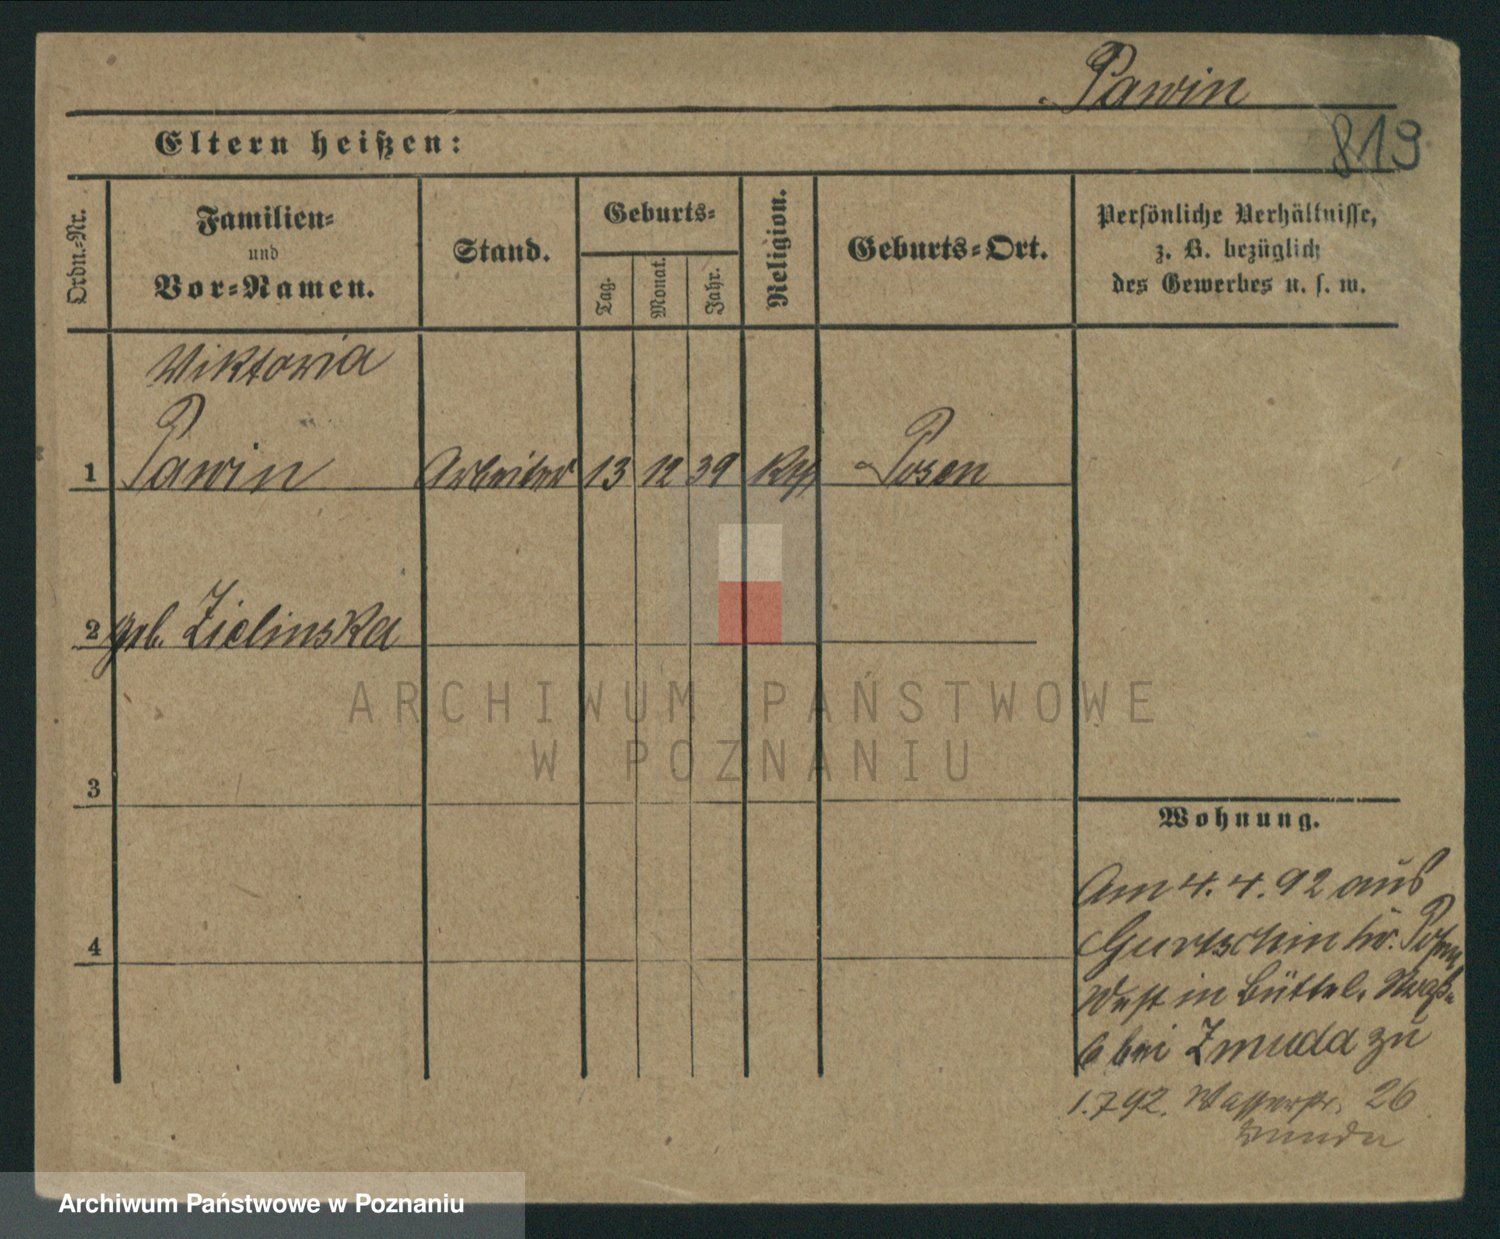 Pawin
819
Eltern heißen:
Ordn.-Nr.
Familien-
und
Vor-Namen.
Stand.
Geburts-
Tag.
Monat.
Jahr.
Religion.
Geburts-Ort.
Persönliche Verhältnisse,
z. B. bezüglich
des Gewerbes u. s. w.
Viktoria
1 Pawin Arbeiter 13 12 39 Posen
2 geb. Zielinska
3
4
Wohnung.
Am 4.4.92 aus
Gurtschin Kr. Posen
West in Büttel. Straße
6 bei Zmuda zu
1.7 92. Wasserstr. 26
ARCHIWUM PAŃSTWOWE
W POZNANIU
Archiwum Państwowe w Poznaniu